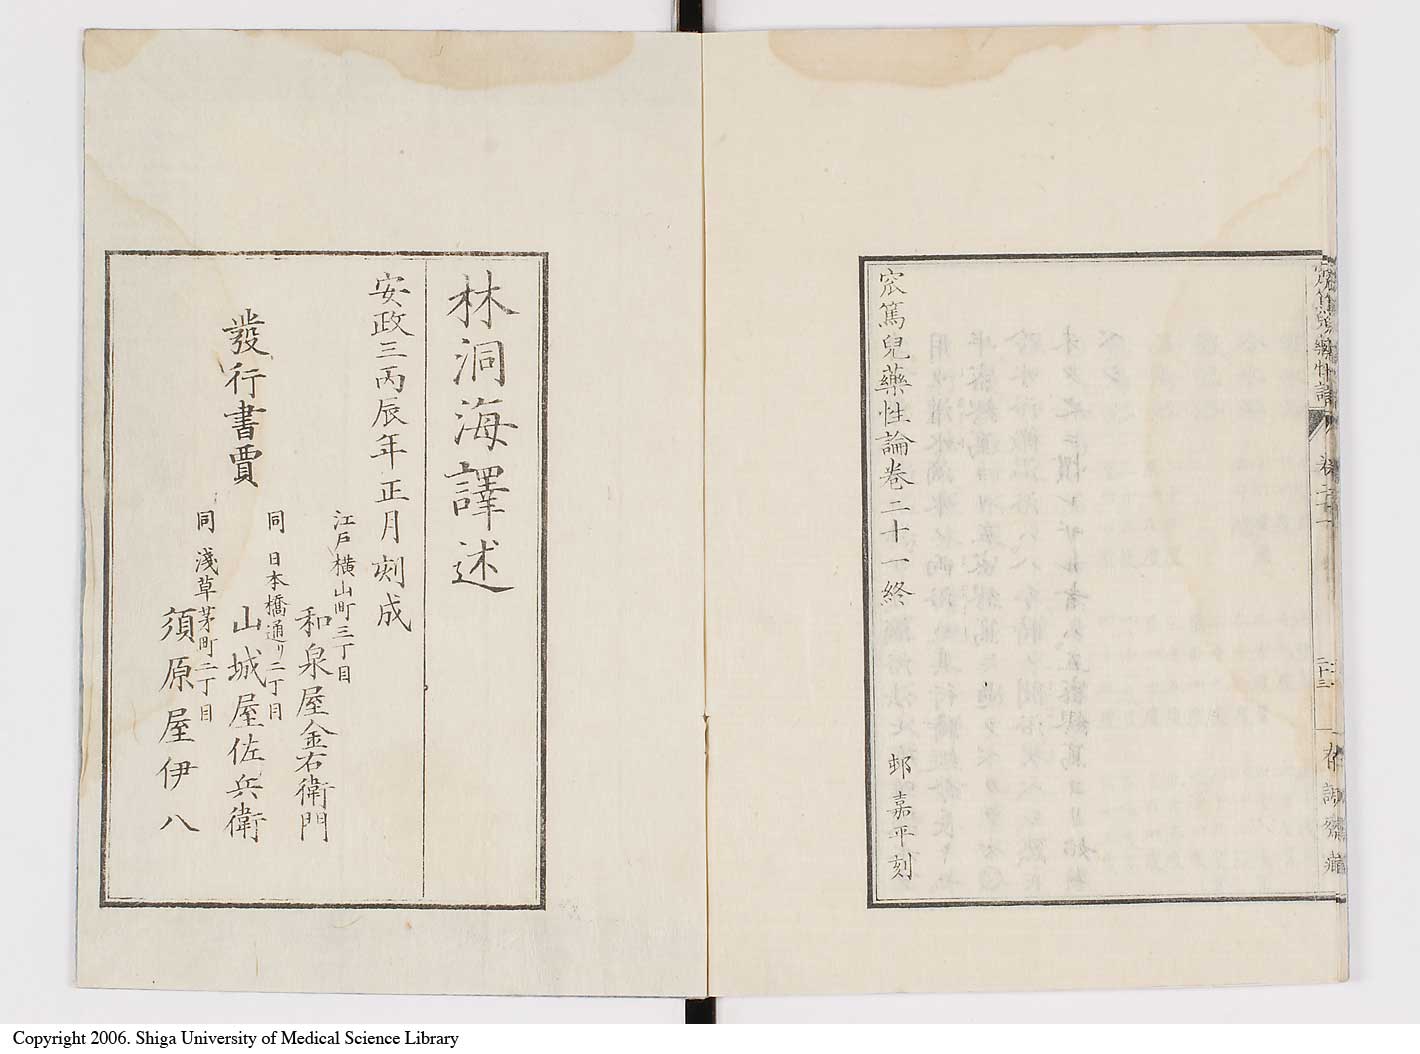 窊篤兒藥性論卷二十一終
邨嘉平刻
林洞海譯述
安政三丙辰年正月刻成
發行書賈
江戸横山町三丁目
和泉屋金右衛門
同 日本橋通リ二丁目
山城屋佐兵衛
同 淺草茅町二丁目
須原屋伊八
Copyright 2006. Shiga University of Medical Science Library